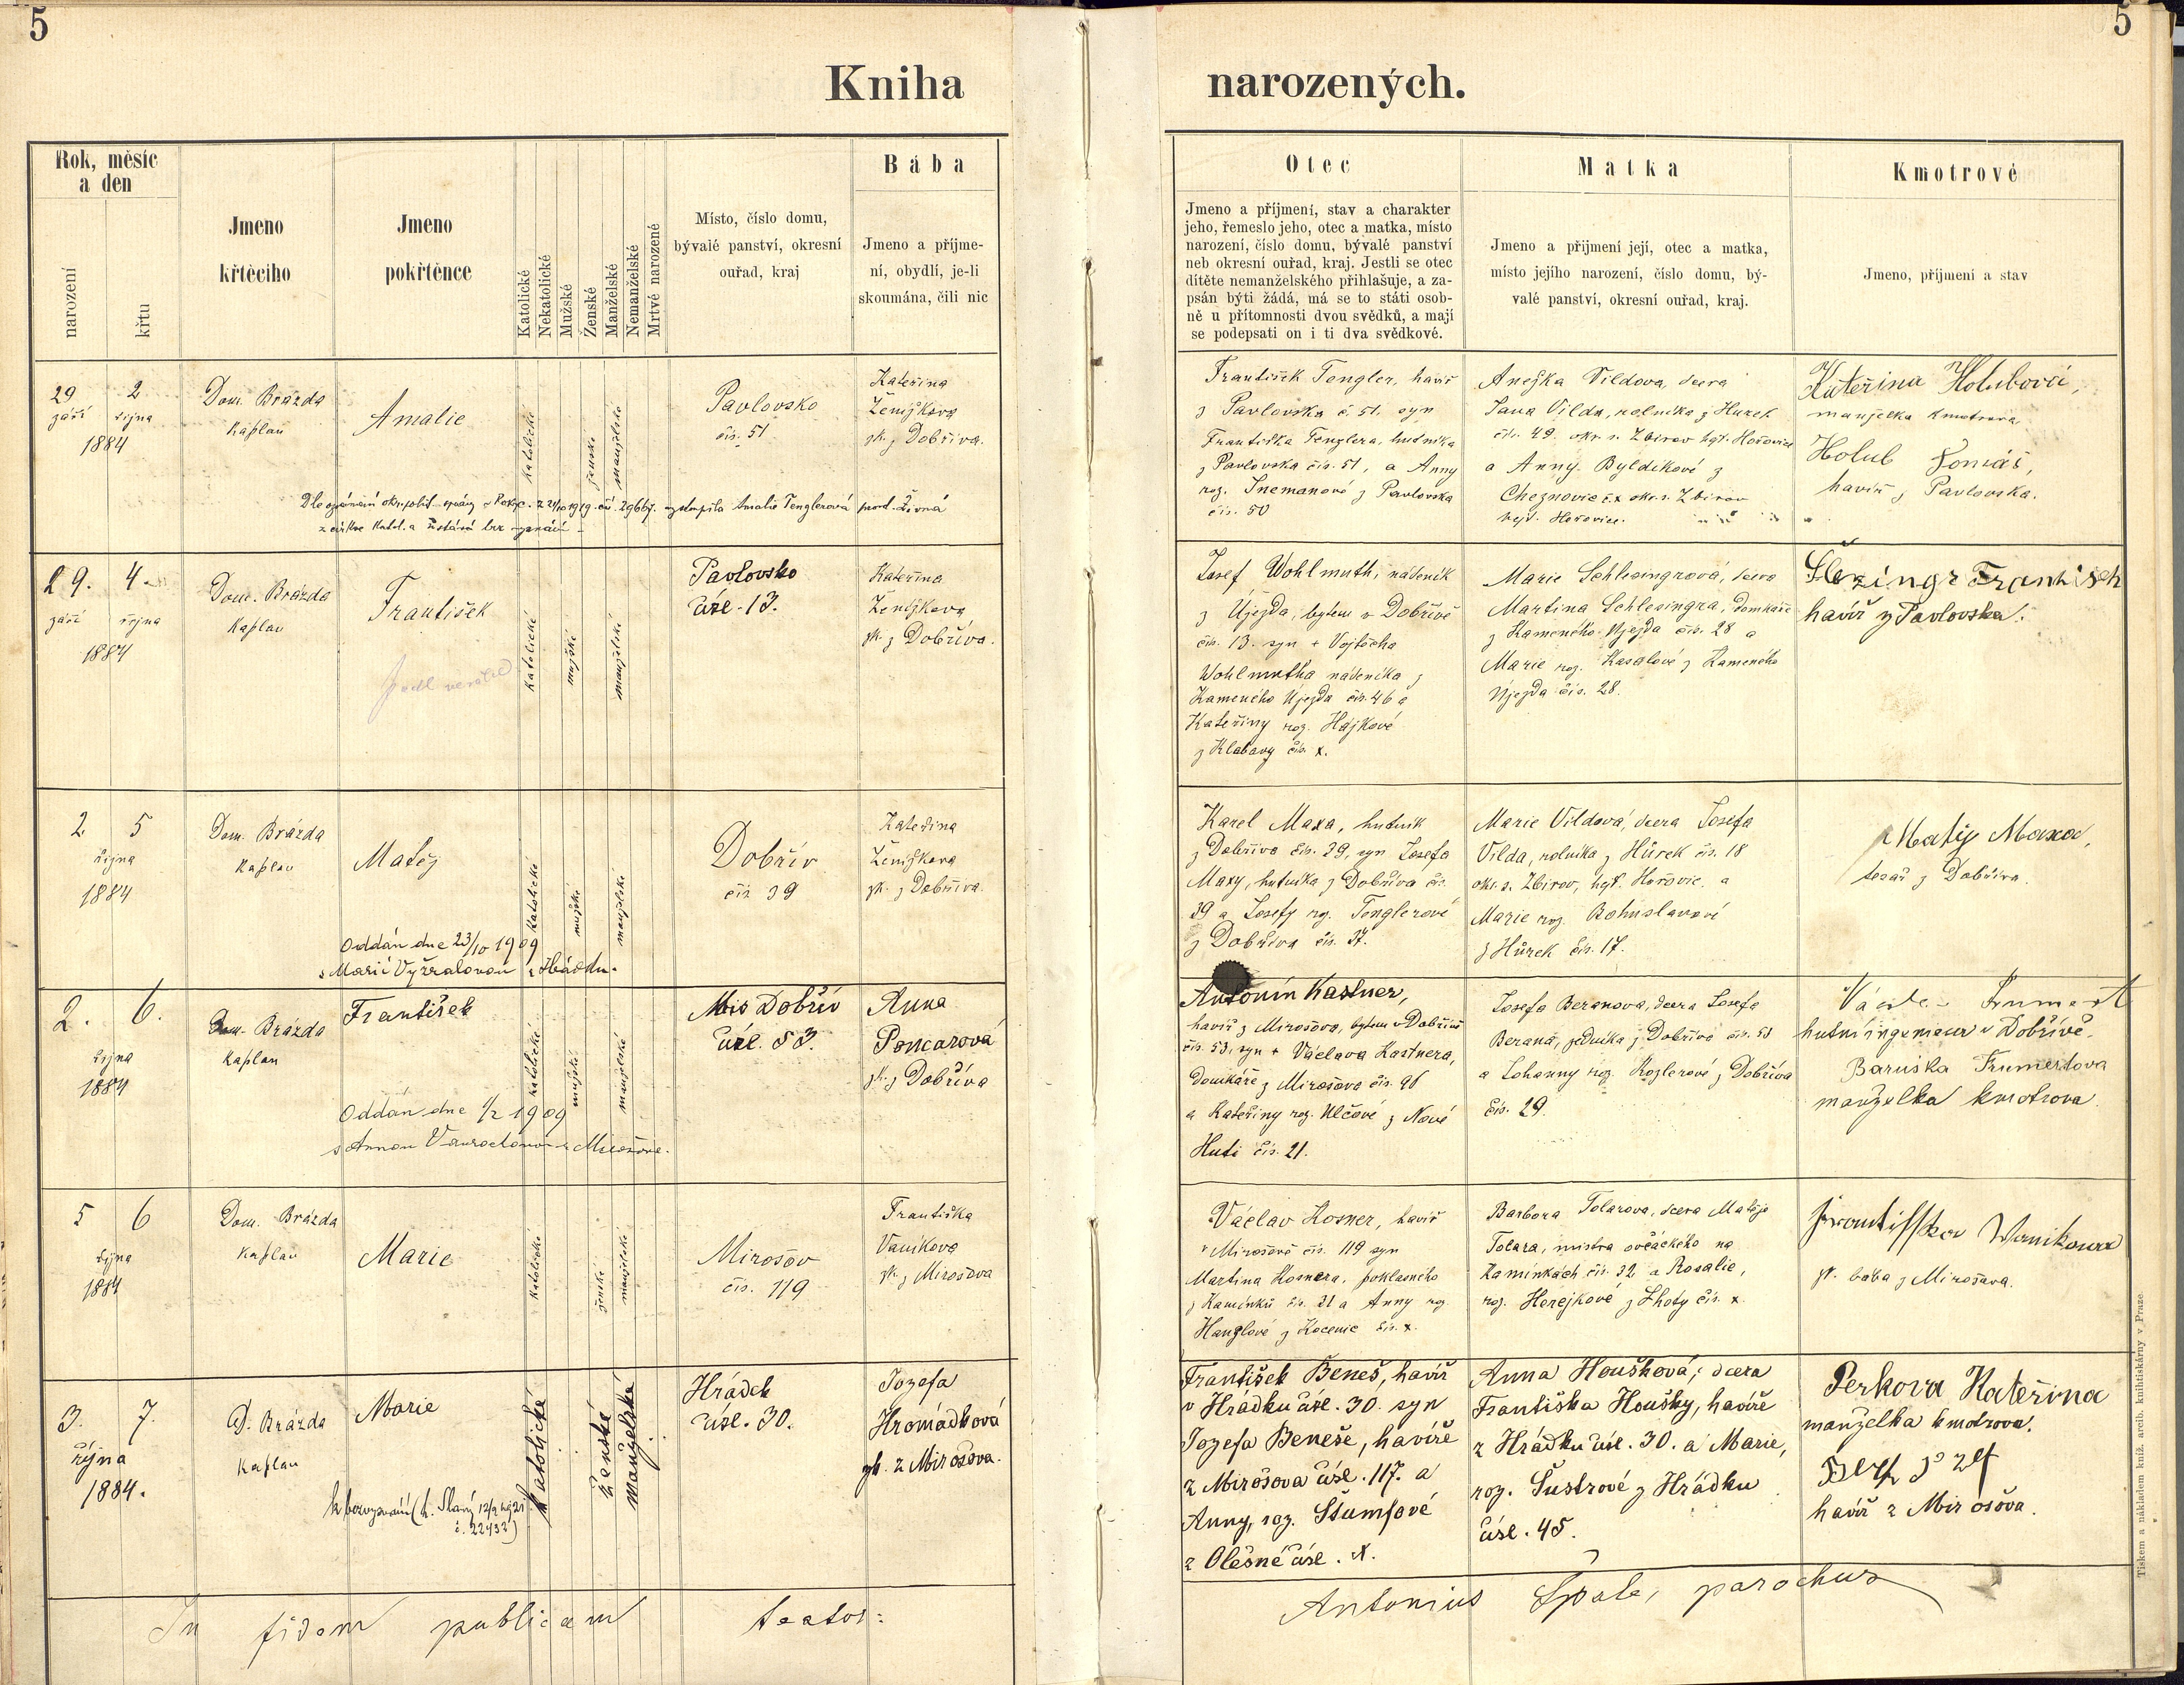 5
5
Kniha narozených.
Rok, měsíc
a den
narození
křtu
Jmeno
křtěcího
Jmeno
pokřtěnce
Katolické
Nekatolické
Mužské
Ženské
Manželské
Nemanželské
Mrtvé narozené
Místo, číslo domu,
bývalé panství, okresní
ouřad, kraj
Bába
Jmeno a příjme-
ní, obydlí, je-li
skoumána, čili nic
Otec
Jmeno a příjmení, stav a charakter
jeho, řemeslo jeho, otec a matka, místo
narození, číslo domu, bývalé panství
neb okresní ouřad, kraj. Jestli se otec
dítěte nemanželského přihlašuje, a za-
psán býti žádá, má se to státi osob-
ně u přítomnosti dvou svědků, a mají
se podepsati on i ti dva svědkové.
Matka
Jmeno a přijmení její, otec a matka,
místo jejího narození, číslo domu, bý-
valé panství, okresní ouřad, kraj.
Kmotrové
Jmeno, příjmení a stav
29 2
září října
1884
Dom. Brázda
Kaplan
Amalie
katolické
ženské
manželské
Pavlovsko
čís. 51
Kateřina
Ženíškova
zk. z Dobříva.
František Tengler, havíř
z Pavlovska č. 51. syn
Františka Tenglera, hutníka
z Pavlovska čís. 51, a Anny
roz. Snemanové z Pavlovska
čís. 50
Anežka Vildova, dcera
Jana Vilda, rolníka z Hurek
čís. 49. okr. s. Zbirov hgt. Hořovice
a Anny Byldíkové z
Cheznovic č. x okr. s. Zbirov
hejt. Hořovice.
Kateřina Holubová,
manželka kmotrova
Holub Tomáš,
havíř z Pavlovska.
vystoupila Amalie Tenglerová prov. Živná
z církve katol. a zůstává bez vyznání
29. 4.
září října
1884
Dom. Brázda
Kaplan
František
katolické
mužské
manželské
Pavlovsko
čísl. 13.
Kateřina
Ženíškova
zk. z Dobříva.
Josef Wohlmuth, nádeník
z Újezda, bytem v Dobřívě
čís. 13. syn + Vojtěcha
Wohlmutha nádeníka z
Kameného Újezda čís. 46 a
Kateřiny roz. Hájkové
z Klabavy čís. x.
Marie Schlesingrová, dcera
Martina Schlesingra, domkáře
z Kameného Újezda čís. 28 a
Marie roz. Kasalové z Kameného
Újezda čís. 28.
Šlezingr František
havíř z Pavlovska.
2 5
října
1884
Dom. Brázda
Kaplan
Matěj
Oddán dne 23/10 1909
s Marií Vyžralovou z Hrádku.
katolické
mužské
manželské
Dobřív
čís 39
Kateřina
Ženíškova
zk. z Dobříva.
Karel Maxa, hutník
z Dobříva čís. 39, syn Josefa
Maxy, hutníka z Dobříva čís.
39 a Josefy roz. Tenglerové
z Dobříva čís. 37.
Marie Vildová, dcera Josefa
Vilda, rolníka z Hůrek čís. 18
okr. s. Zbirov, hgt. Hořovic, a
Marie roz. Bohuslavové
z Hůrek čís. 17.
Matěj Maxa,
tesař z Dobříva.
2. 6.
října
1884
Dom. Brázda
Kaplan
František
Oddán dne 1/2 1909
s Annou
katolické
mužské
manželské
Mis Dobřív
čísl. 53.
Anna
Poncarová
zk. z Dobříva
Antonín Kastner,
havíř z Mirošova, bytem v Dobřívě
čís. 53, syn + Václava Kastnera,
domkáře z Mirošova čís. 96
a Kateřiny roz. Ulčové z Nové
Huti čís. 21.
Josefa Beranova, dcera Josefa
Berana, zedníka z Dobříva čís. 53
a Johanny roz. Kozlerové z Dobříva
čís. 29.
hutní v Dobřívě.
Baruška Frumertova
manželka kmotrova
5 6
října
1884
Dom. Brázda
Kaplan
Marie
katolické
ženské
manželské
Mirošov
čís. 119
Františka
Vaníkova
zk. z Mirošova
Václav Kosner, havíř
v Mirošově čís. 119 syn
Martina Kosnera, poklasného
z Kamínků čís. 31 a Anny roz.
Hanzlové z Kocenic čís. x.
Barbora Tolarova, dcera Matěje
Tolara, mistra ovčáckého na
Kamínkách čís. 32 a Rosalie,
roz. Herejkové z Lhoty čís. x.
Frantisska Wanikowa
zk. bába z Mirošova.
3. 7.
října
1884.
D. Brázda
Kaplan
Marie
katolické
ženské
manželské
Hrádek
čísl. 30.
Jozefa
Hromádková
zk. z Mirošova.
František Beneš, havíř
v Hrádku čísl. 30. syn
Jozefa Beneše, havíře
z Mirošova čísl. 117. a
Anny, roz. Štumfové
z Olešné čísl. x.
Anna Houšková, dcera
Františka Houšky, havíře
z Hrádku čísl. 30. a Marie,
roz. Šustrové z Hrádku
čísl. 45.
Perkova Kateřina
manželka kmotrova.
havíř z Mirošova.
In fidem publicam testor:
Antonius Špale, parochus
Tiskem a nákladem kníž. arcib. knihtiskárny v Praze.